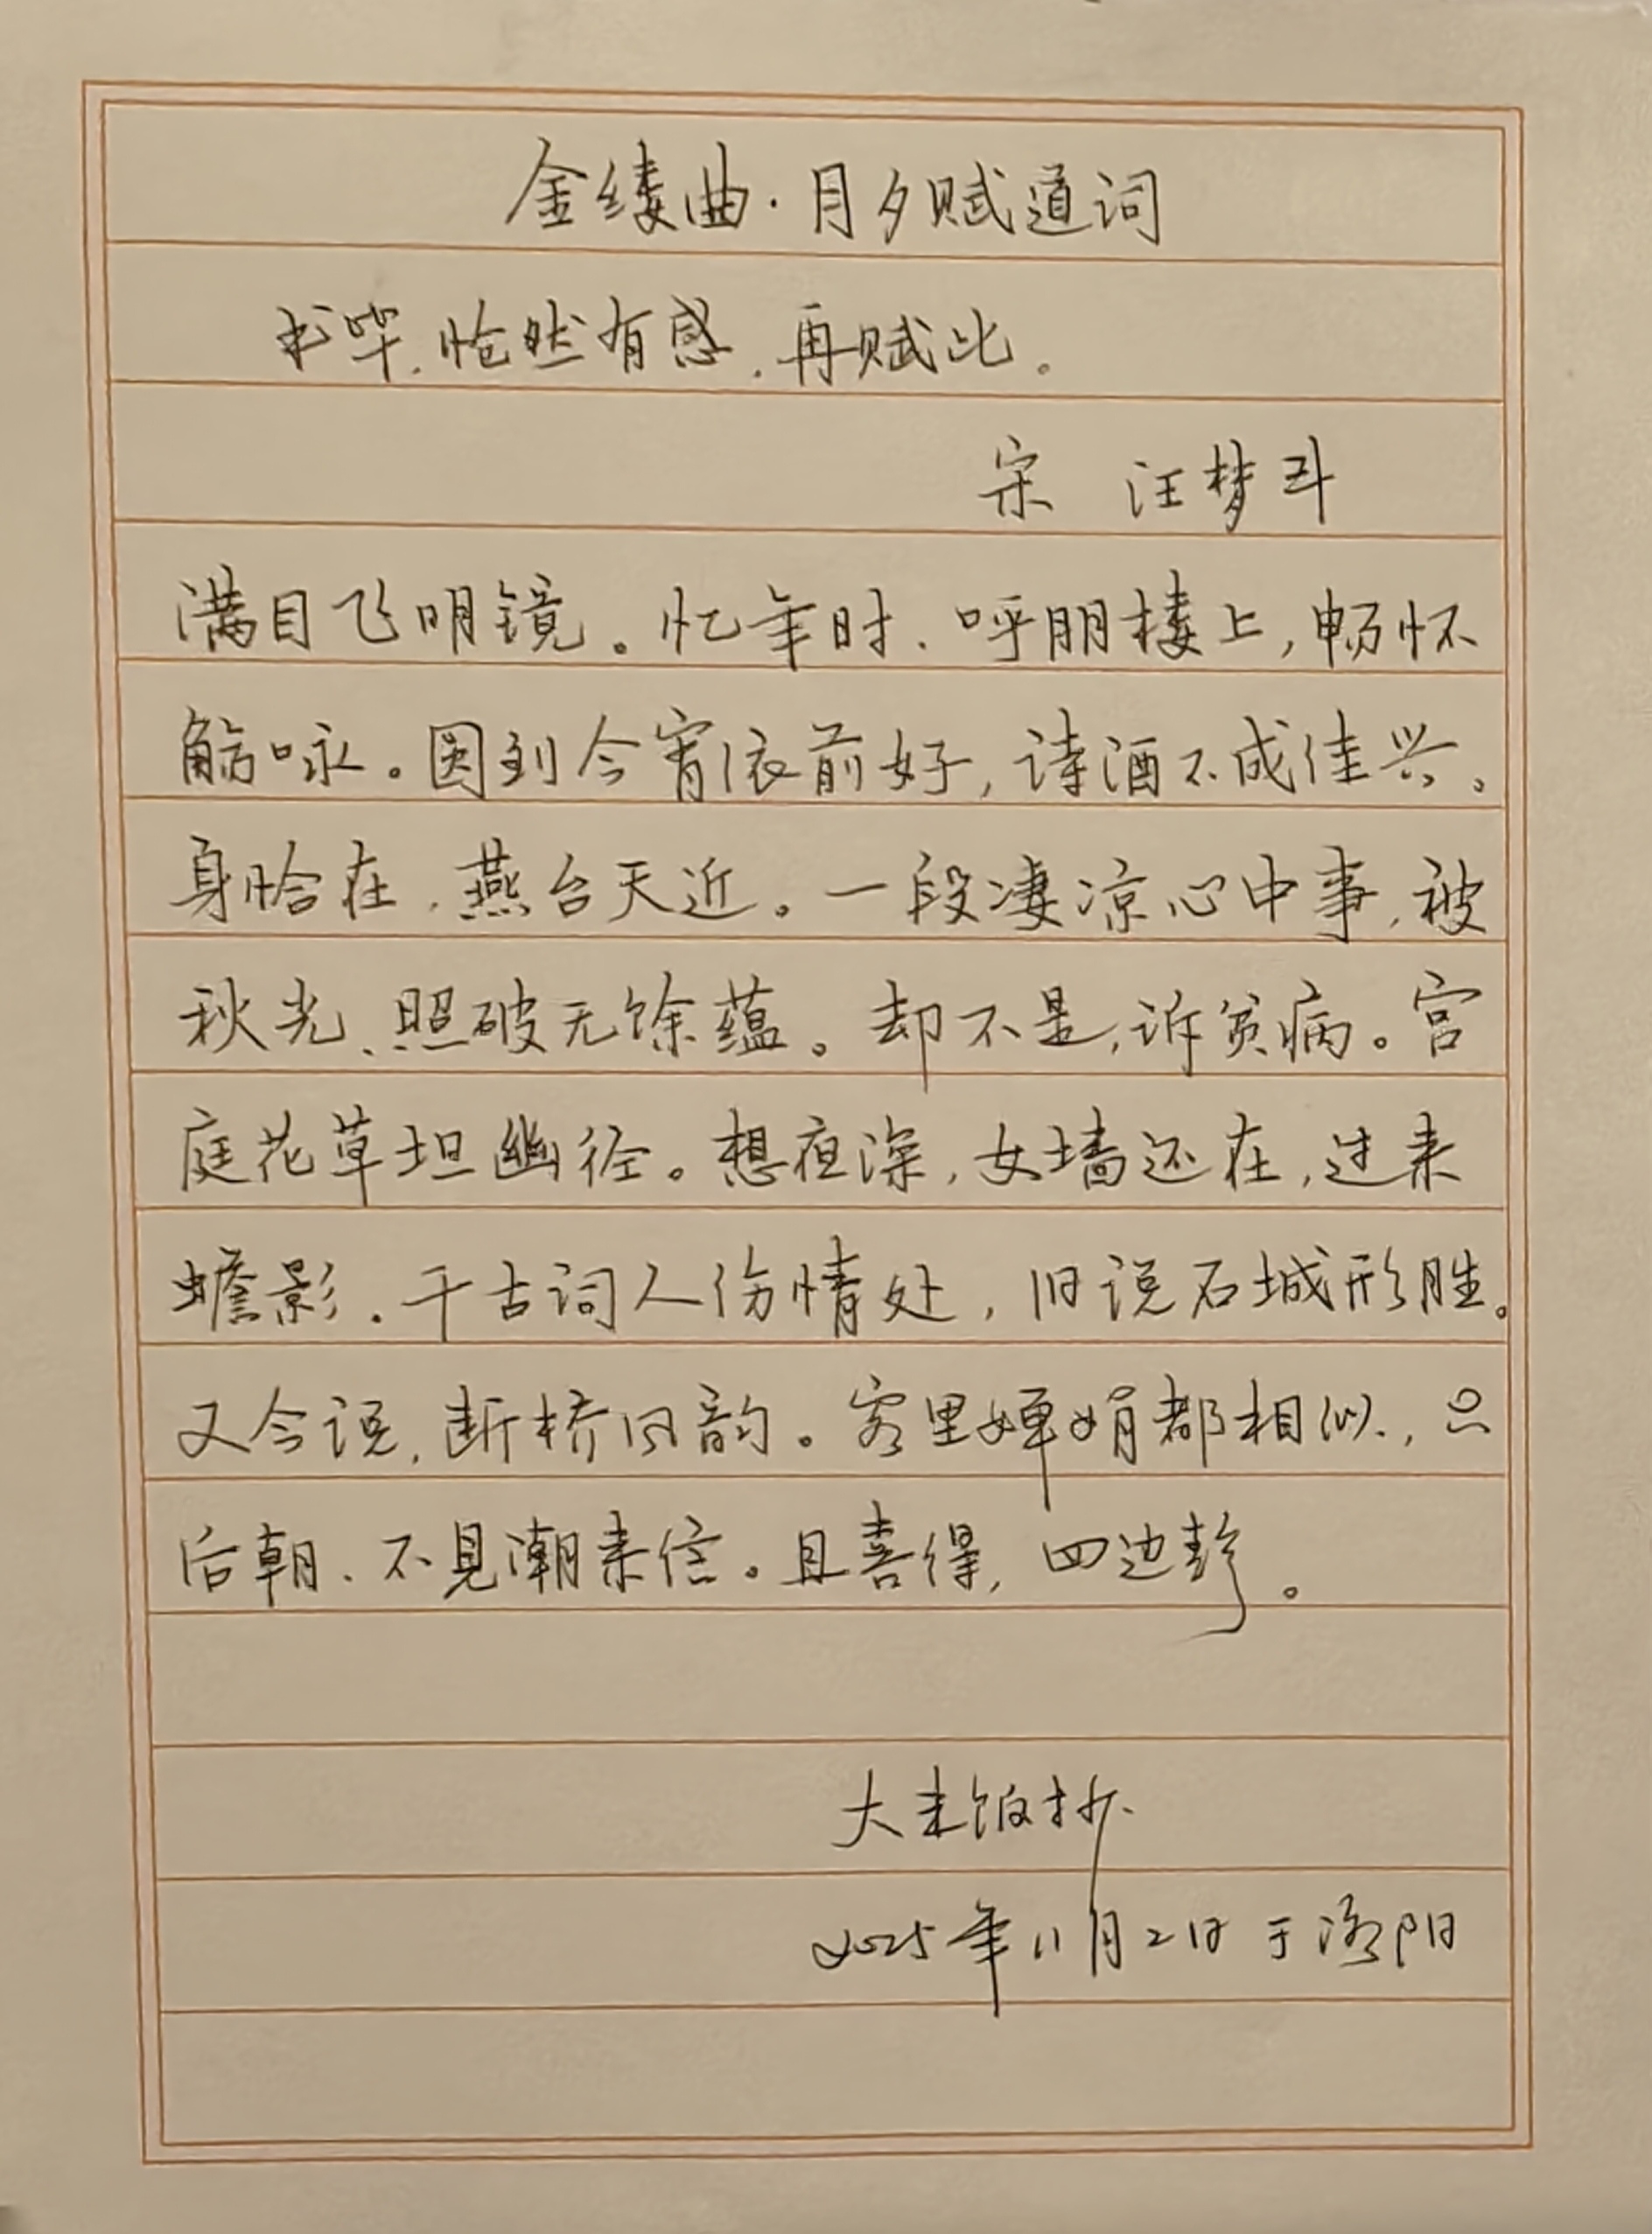 金缕曲·月夕赋道词
书毕,怆然有感,再赋此。
宋 汪梦斗
满目飞明镜。忆年时、呼朋楼上,畅怀
觞咏。圆到今宵依前好,诗酒不成佳兴。
身恰在、燕台天近。一段凄凉心中事,被
秋光、照破无馀蕴。却不是,诉贫病。宫
庭花草坦幽径。想夜深,女墙还在,过来
蟾影。千古词人伤情处,旧说石城形胜。
又今说,断桥风韵。客里婵娟都相似,只
后朝、不见潮来信。且喜得,四边静。
大来饭抄
2025年11月2日于洛阳